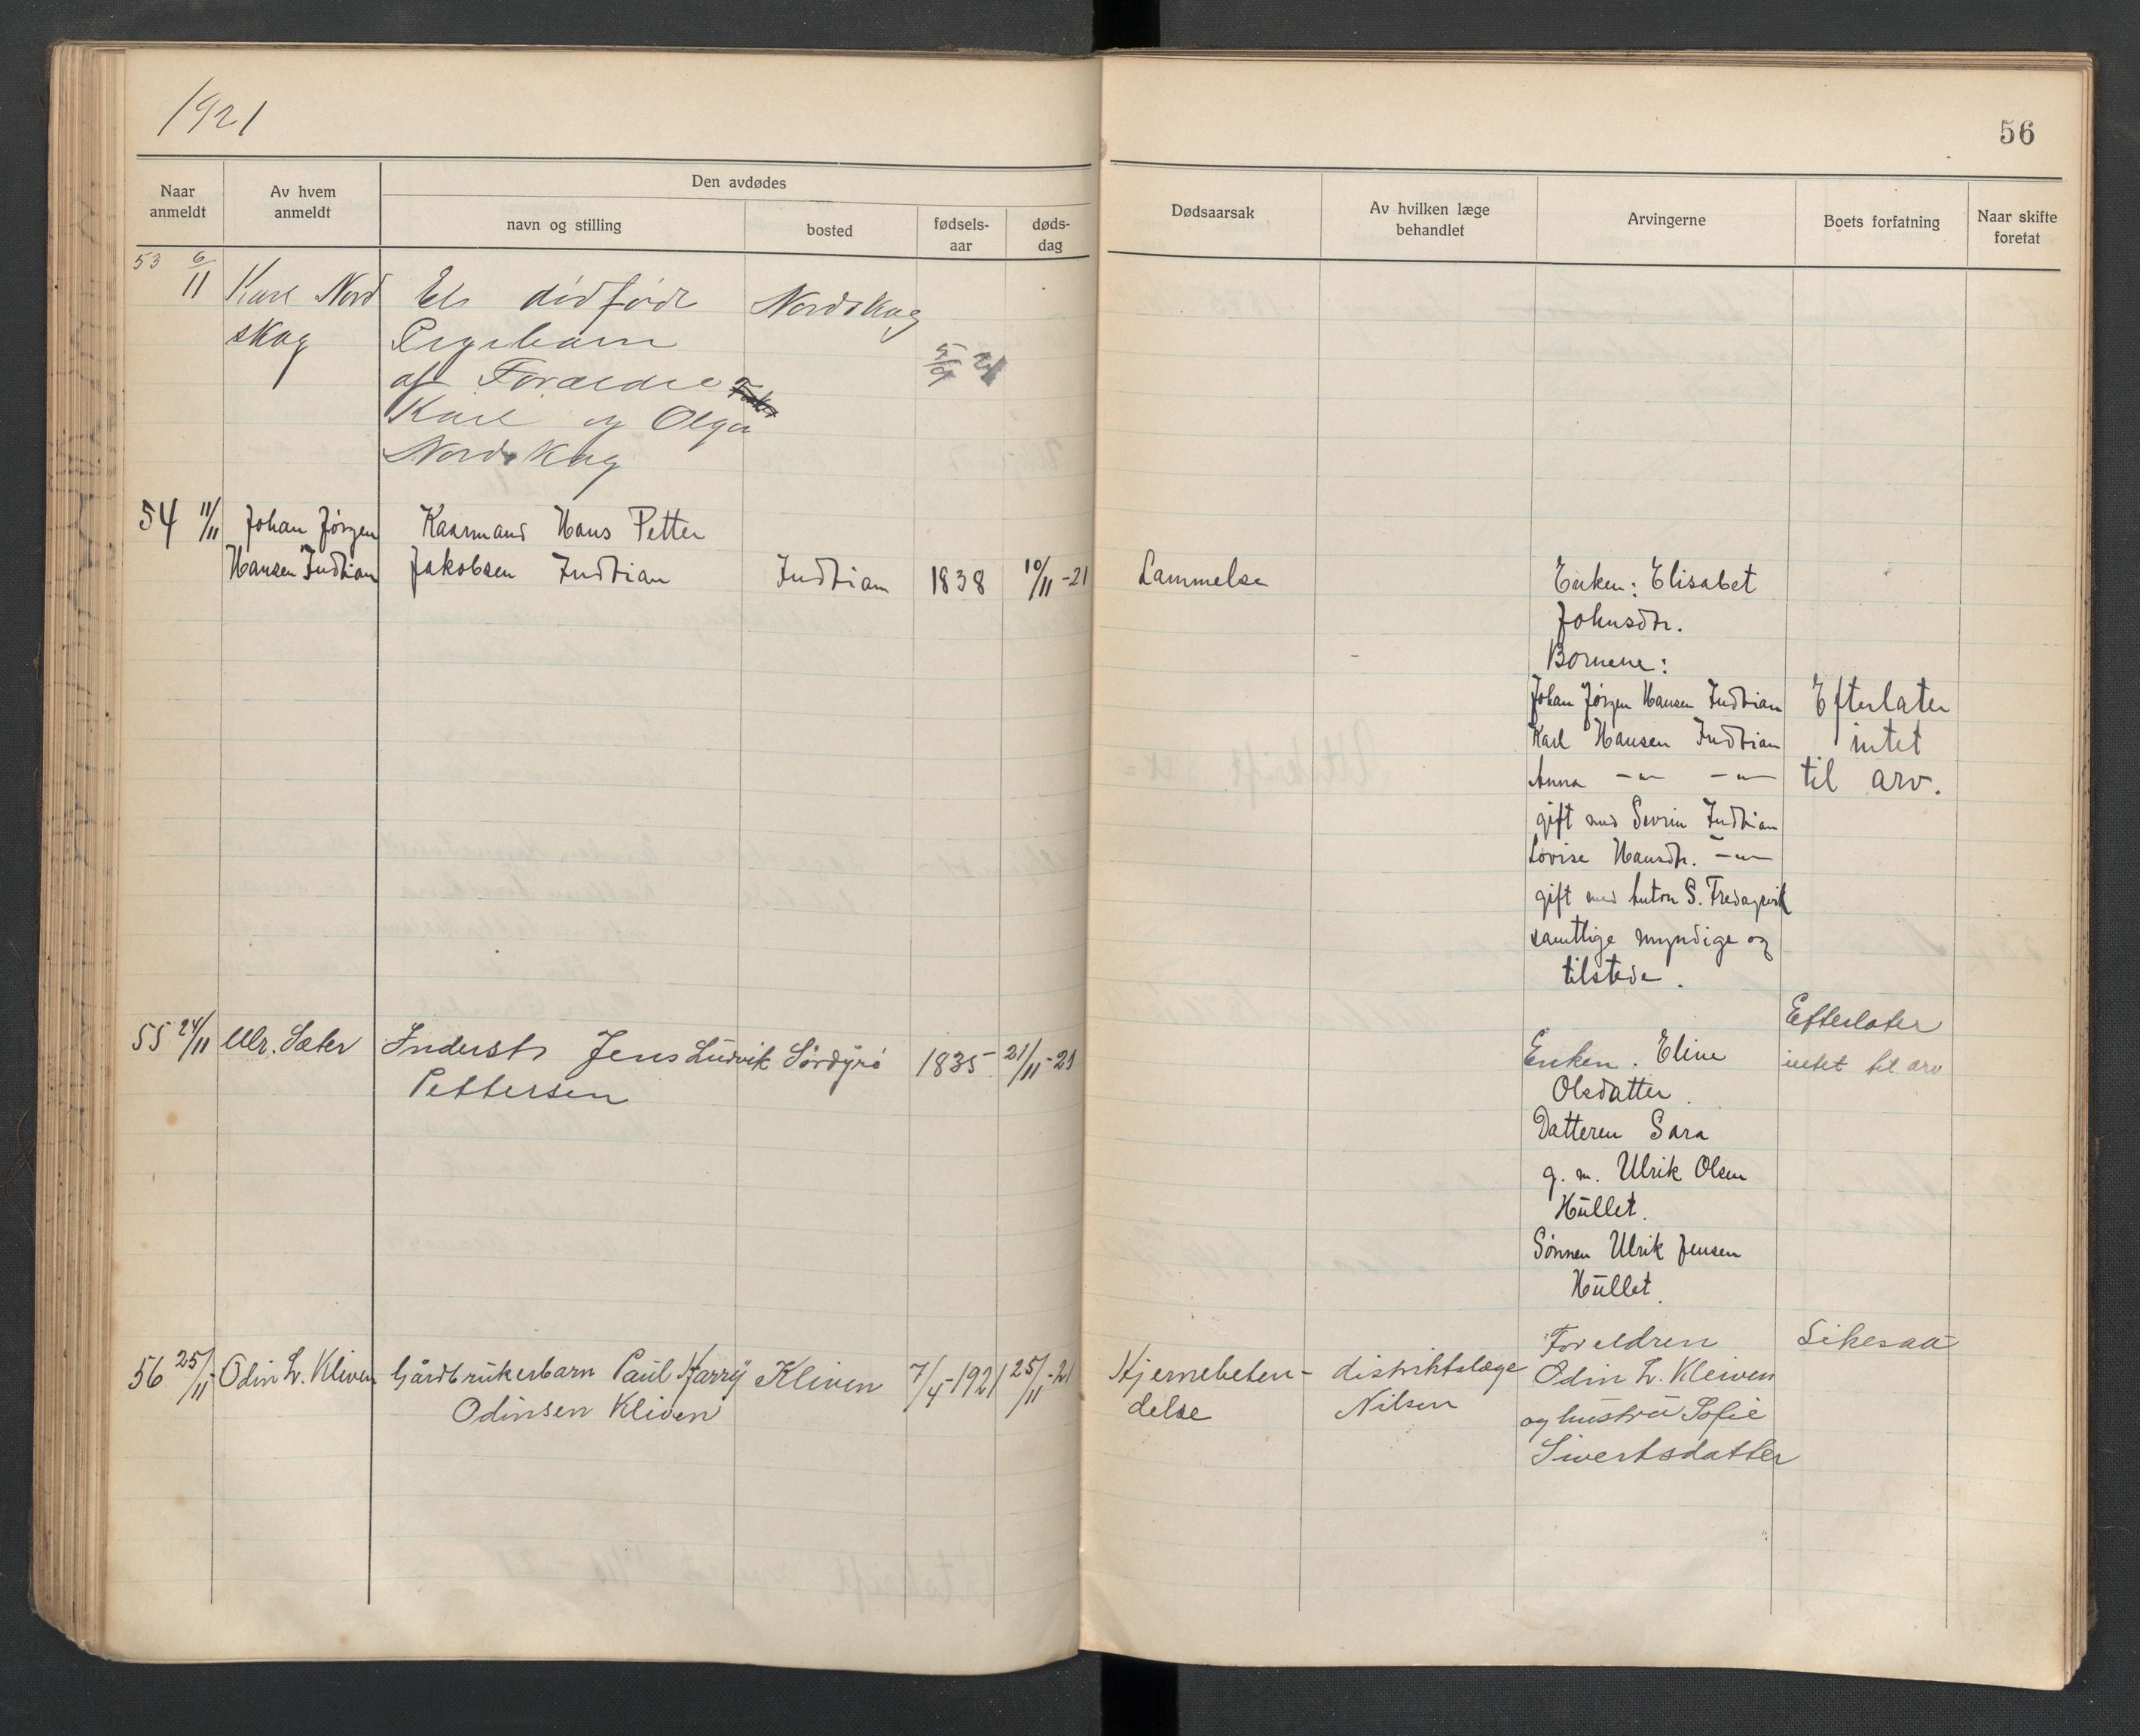 1921
56
Naar anmeldt
Av hvem anmeldt
Den avdødes
navn og stilling
bosted
fødsels-aar
døds-dag
Dødsaarsak
Av hvilken læge behandlet
Arvingerne
Boets forfatning
Naar skifte foretat
53 6/11 Karl Nord Et dødfødt Nordskog
skog Pigebarn
af Forældre 5/9 21
Karl og Olga
Nordskog
54 11/11 Johan Jørgen Kaarmand Hans Petter
Hansen Indbian Jakobsen Indbian Indbian 1838 10/11-21 Lammelse Enken: Elisabet
Johnsdtr.
Børnene:
Johan Jørgen Hansen Indbian Efterlater
Karl Hansen Indbian intet
Anna -"- -"- til arv.
gift med Sevrin Indbian
Lovise Hansdtr. -"-
gift med Anton S. Fredagsvik
samtlige myndige og
tilstede.
55 24/11 Mr. Sæter Inderst Jens Ludvik Sørdyrø 1835 21/11-21 Enken. Eline Efterlater
Pettersen Olsdatter. intet til arv
Datteren Sara
g. m. Ulrik Olsen
Hullet.
Sønnen Ulrik Jensen
Hullet.
Foreldren Likesaa
56 25/11 Odin L. Kliven Gårdbrukerbarn Paul Harry Kliven 7/4-1921 25/11-21 Hjernebeten- distriktslæge Odin L. Kleiven
Odinsen Kliven delse Nilsen og hustru Sofie
Sivertsdatter